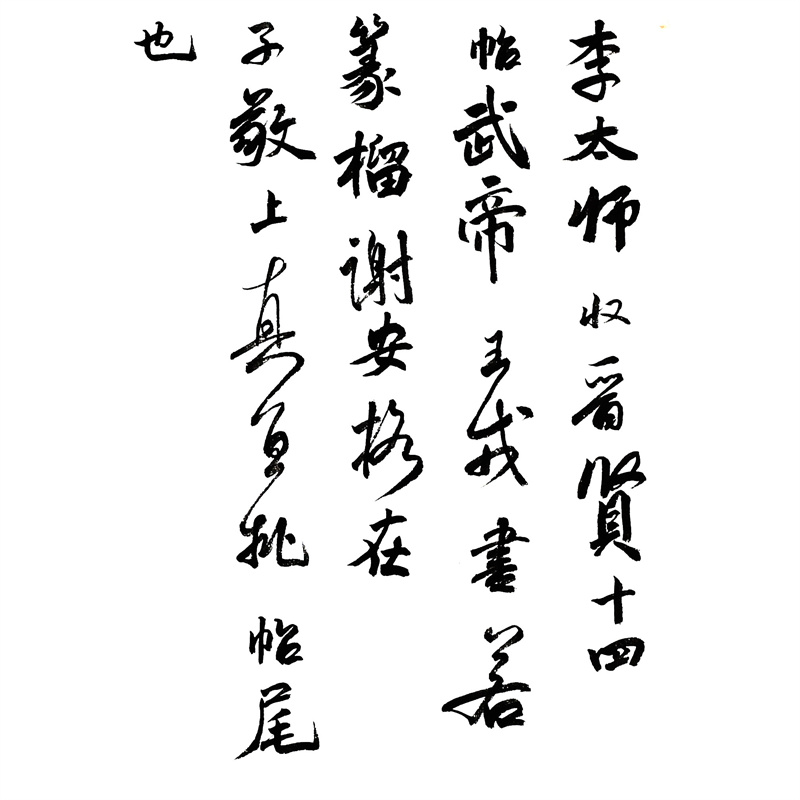 李太师收晋贤十四
帖武帝王戎書若
篆榴谢安格在
子敬上真宜批帖尾
也